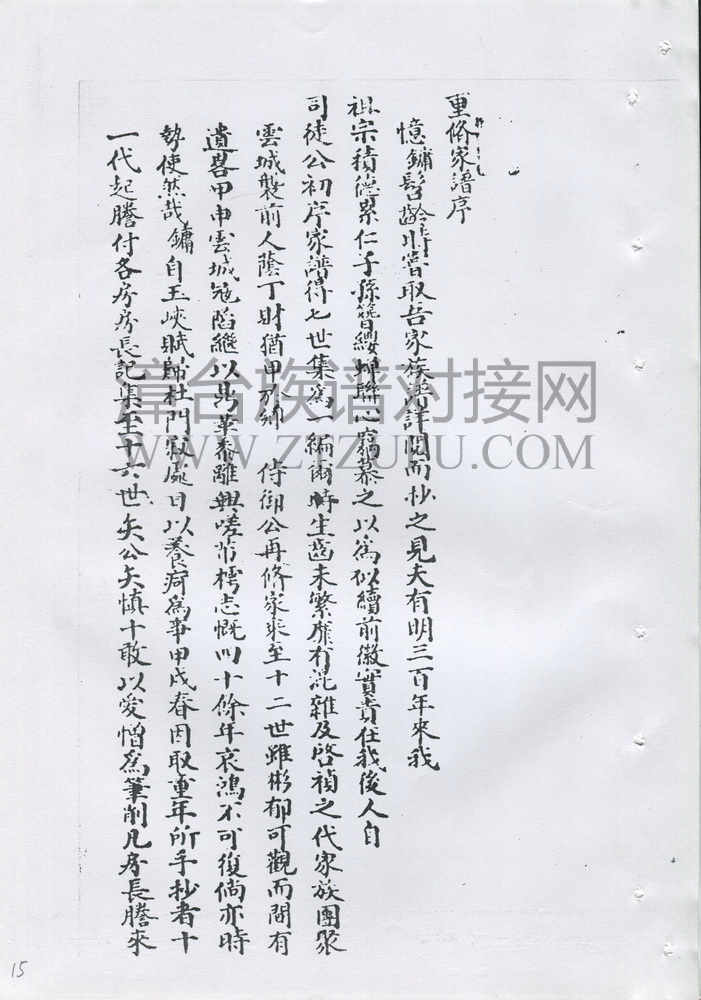 重修家譜序
憶鏞髫齡時嘗取吾家族乘詳閱而抄之見夫有明三百年來我
祖宗積德累仁子孫簪纓蟬聯心竊慕之以為似續前徽實責任我後人自
司徒公初序家譜得七世集為一編爾時生齒未繁靡有混雜及啓禎之代家族團聚
雲城製前人蔭丁財猶甲於 侍御公再修家乘至十二世雖彬郁可觀而間有
遺畧甲申雲城寇陷繼以鼎革黍離興嗟苕樗志慨四十餘年哀鴻不可復倘亦時
勢使然哉鏞自玉峽賦歸杜門寂處日以養疴為事甲戌春因取重年所手抄者十
一代起謄付各房房長記集至十六世矣公矢慎十敢以愛憎為筆削凡房長謄來
漳台族谱对接网
WWW.ZTZUPU.COM
15